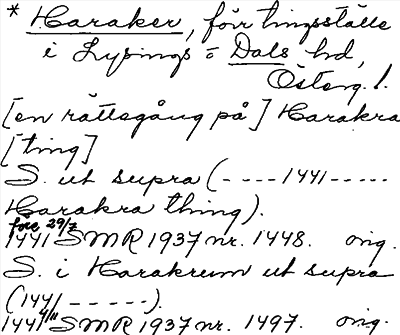 * Haraker, förr tingsställe
i Lysings o Dals hd,
Österg. l.
[en rättegång på] Harakra
[ting]
S. ut supra (----1441-----
Harakra thing).
före 29/7
1441 SMR 1937 nr. 1448. orig.
S. i Harakrum ut supra
(1441-----).
1441 SMR 1937 nr. 1497. orig.